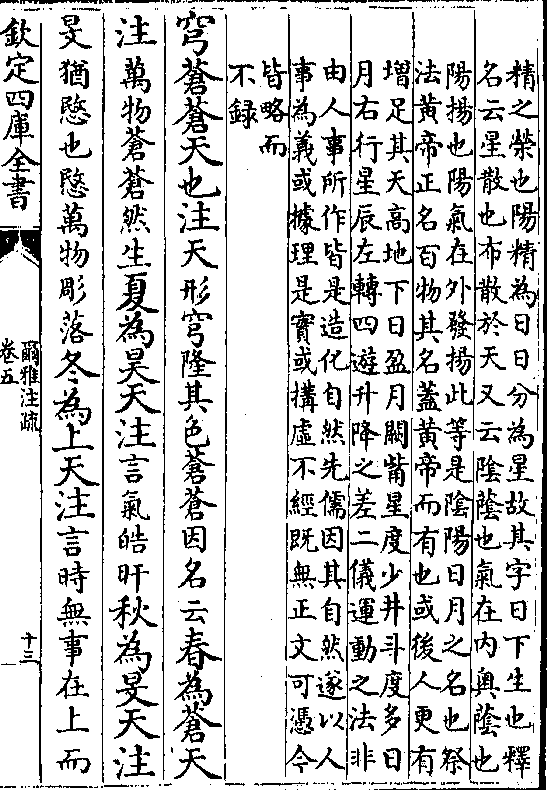 精之榮也陽精為日日分為星故其字日下生也釋
名云星散也布散於天又云陰蔭也氣在内奥蔭也
陽揚也陽氣在外發揚此等是陰陽日月之名也祭
法黄帝正名百物其名蓋黄帝而有也或後人更有
増足其天髙地下日盈月闕觜星度少井斗度多日
月右行星辰左轉四遊升降之差二儀運動之法非
由人事所作皆是造化自然先儒因其自然遂以人
事為義或據理是實或搆虚不經既無正文可憑今
皆略而
不録
穹蒼蒼天也注天形穹隆其色蒼蒼因名云春為蒼天
注萬物蒼蒼然生夏為昊天注言氣皓旰秋為旻天注
旻猶愍也愍萬物彫落冬為上天注言時無事在上而
欽定四庫全書
爾雅注疏
卷五
十三